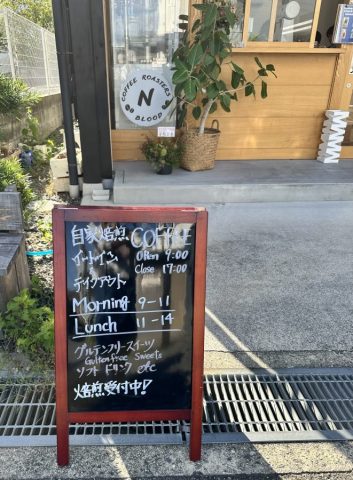 COFFEE ROASTERS
N
BLOOP
自家焙煎 COFFEE
イートイン OPEN 9:00
& Close 17:00
テイクアウト
Morning 9-11
Lunch 11-14
グルテンフリースイーツ
Gulten free Sweets
ソフトドリンク etc
焙煎受付中!